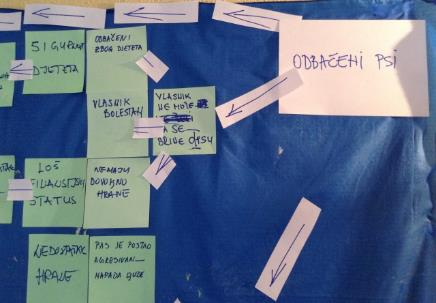 ODBAČENI PSI
SIGURNOST
DJETETA
ODBAČENI
ZBOG DJETETA
VLASNIK
BOLESTAN
VLASNIK
NE MOŽE
DA SE
BRINE O PSU
LOŠ
FINANSIJSKI
STATUS
NEMAJU
DOVOLJNO
HRANE
NEDOSTATAK
HRANE
PAS JE POSTAO
AGRESIVAN—
NAPADA LJUDE